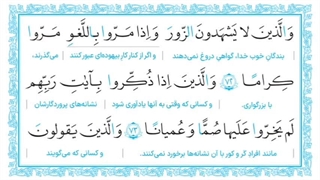 وَالَّذینَ لا یَشهَدونَ الزّورَ وَاِذا مَرّوا بِاللَّغوِ مَرّوا
بندگان خوب خدا، گواهیِ دروغ نمی‌دهند و اگر از کنار کار بیهوده‌ای عبور کنند می‌گذرند،
کِرامًا ﴿٧٢﴾ وَالَّذینَ اِذا ذُکِّروا بِآیاتِ رَبِّهِم
با بزرگواری. و کسانی که وقتی به آنها یادآوری شود نشانه‌های پروردگارشان
لَم یَخِرّوا عَلَیها صُمًّا وَ عُمیانًا ﴿٧٣﴾ وَالَّذینَ یَقولونَ
مانند افراد کر و کور با آن نشانه‌ها برخورد نمی‌کنند. و کسانی که می‌گویند